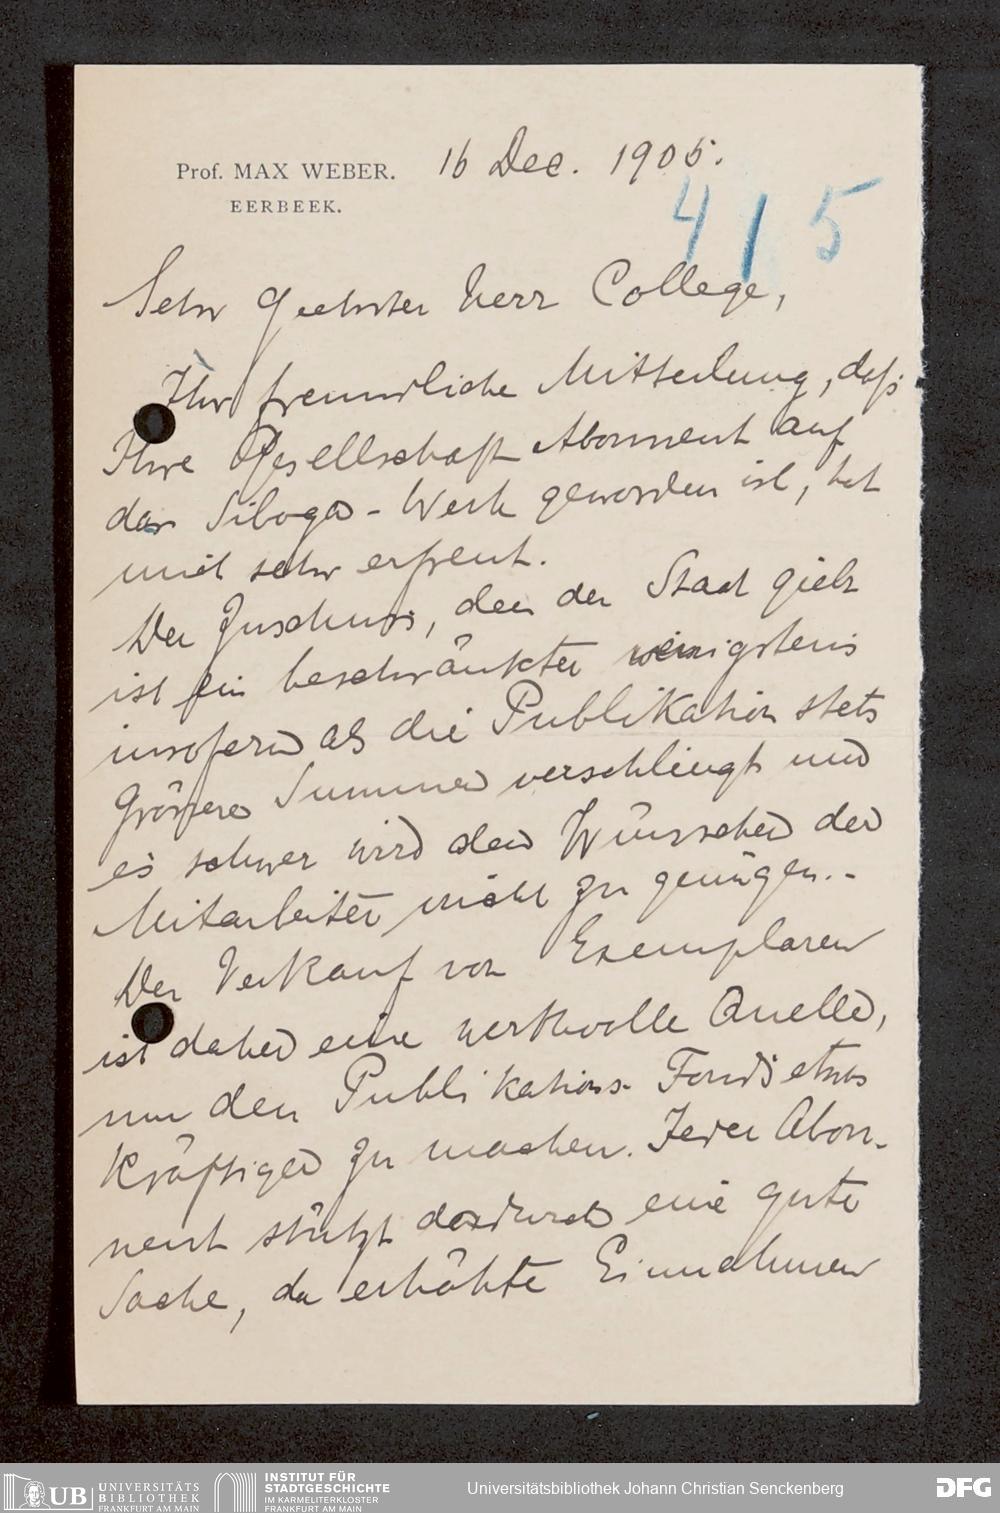 Prof. MAX WEBER.
EERBEEK.
16 Dec. 1905.
415
Sehr geehrter Herr College,
Ihre freundliche Mitteilung, daß
Ihre Gesellschaft Abonnent auf
das Siboga-Werk geworden ist, hat
mich sehr erfreut.
Der Zuschuss, den der Staat giebt
ist ein beschränkter wenigstens
insofern als die Publikation stets
grössere Summen verschlingt und
es schwer wird den Wünschen der
Mitarbeiter nicht zu genügen.-
Der Verkauf von Exemplaren
ist daher eine werthvolle Quelle,
um den Publikations-Fonds etwas
kräftiger zu machen. Jeder Abon-
nent stützt dadurch eine gute
Sache, da erhöhte Einnahmen
UB UNIVERSITÄTS
BIBLIOTHEK
FRANKFURT AM MAIN
INSTITUT FÜR
STADTGESCHICHTE
IM KARMELITERKLOSTER
FRANKFURT AM MAIN
Universitätsbibliothek Johann Christian Senckenberg
DFG